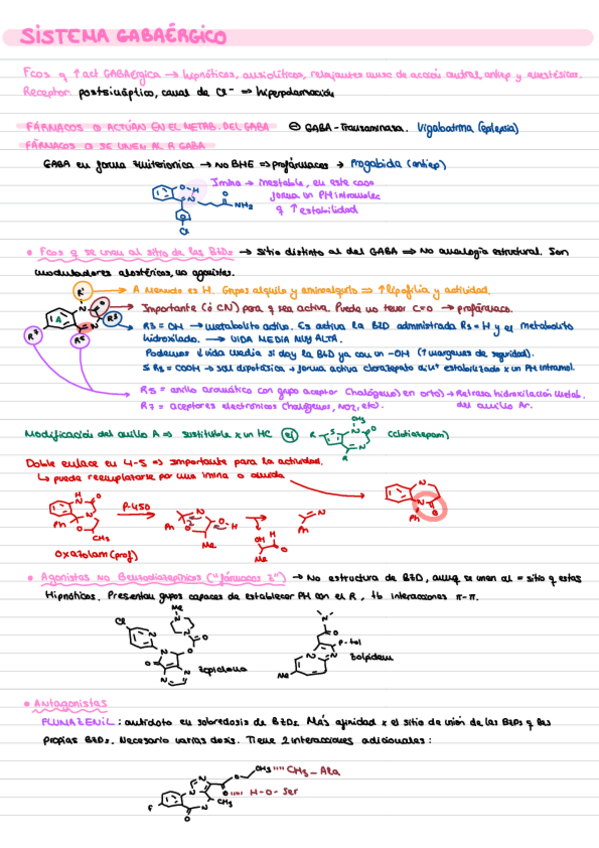 SISTEMA GABAÉRGICO
Fcos q ↑ act GABAérgica → hipnóticos, ansiolíticos, relajantes musc de acción central, antiep y anestésicos.
Receptor postsináptico, canal de Cl⁻ ⇒ hiperpolarización
FÁRMACOS Q ACTÚAN EN EL METAB. DEL GABA ⊖ GABA-Transaminasa. Vigabatrina (epilepsia)
FÁRMACOS Q SE UNEN AL R GABA
GABA en forma zwiteriónica → NO BHE ⇒ profármacos → Progabida (antiep)
Imina → inestable, en este caso
forma un PH intramolec
q ↑ estabilidad
O-H
N
O
NH₂
F
Cl
• Fcos q se unen al sitio de las BZDs → Sitio distinto al del GABA ⇒ No analogía estructural. Son
moduladores alostéricos, no agonistas.
R¹
A menudo es H. Grupos alquilo y aminoalquilo ⇒ ↑ lipofilia y actividad.
Importante (ó CN) para q sea activa. Puede no tener C=O → profármaco.
A
R3
R7
R5
R3 = OH → metabolito activo. Es activa la BZD administrada R₃ = H y el metabolito
hidroxilado. → VIDA MEDIA MUY ALTA.
Podemos ↓ vida media si doy la BZD ya con un -OH (↑ margenes de seguridad).
Si R₃ = COOH → sal dipotásica → forma activa clorazepato diK⁺ estabilizado x un PH intramol.
R5 = anillo aromático con grupo aceptor (halógeno) en orto) → Retrasa hidroxilación metab.
R7 = aceptores electrónicos (halógenos, NO₂, etc).
del anillo Ar.
Modificación del anillo A ⇒ sustituible x un HC (ej) (clotiazepam)
CH₃
R
S
N
O
N
R
Doble enlace en 4-5 ⇒ importante para la actividad.
↳ puede reemplazarse por una imina o amida
P-450
Ph
CH₃
Me
Oxazolam (prof)
• Agonistas No Benzodiazepínicos ("fármacos Z") → No estructura de BZD, aunq se unen al = sitio q estas
Hipnóticos. Presentan grupos capaces de establecer PH con el R, tb interacciones π-π.
Me
Cl
Zopiclona
p-tol
Zolpidem
Me
• Antagonistas
FLUMAZENIL : antídoto en sobredosis de BZDs. Más afinidad x el sitio de unión de las BZDs q las
propias BZDs. Necesario varias dosis. Tiene 2 interacciones adicionales :
CH₃ ıııı CH₃ - Ala
O ıııı H-O-Ser
CH₃
F
O